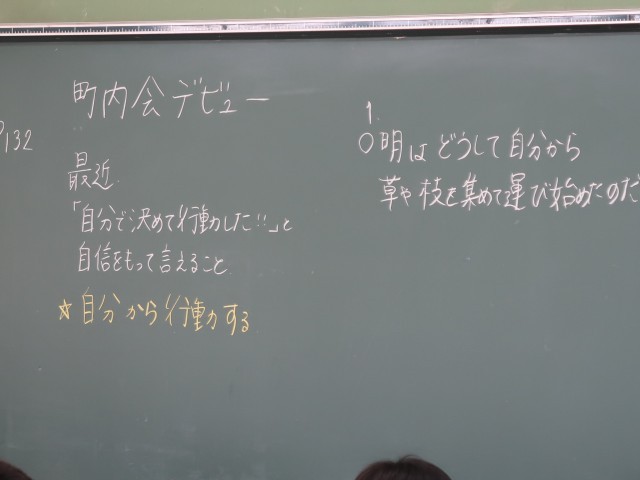 町内会デビュー
P132
最近
「自分で決めて行動した!!」と
自信をもって言えること
☆自分から行動する
1.
○明はどうして自分から
草や枝を集めて運び始めたのだ